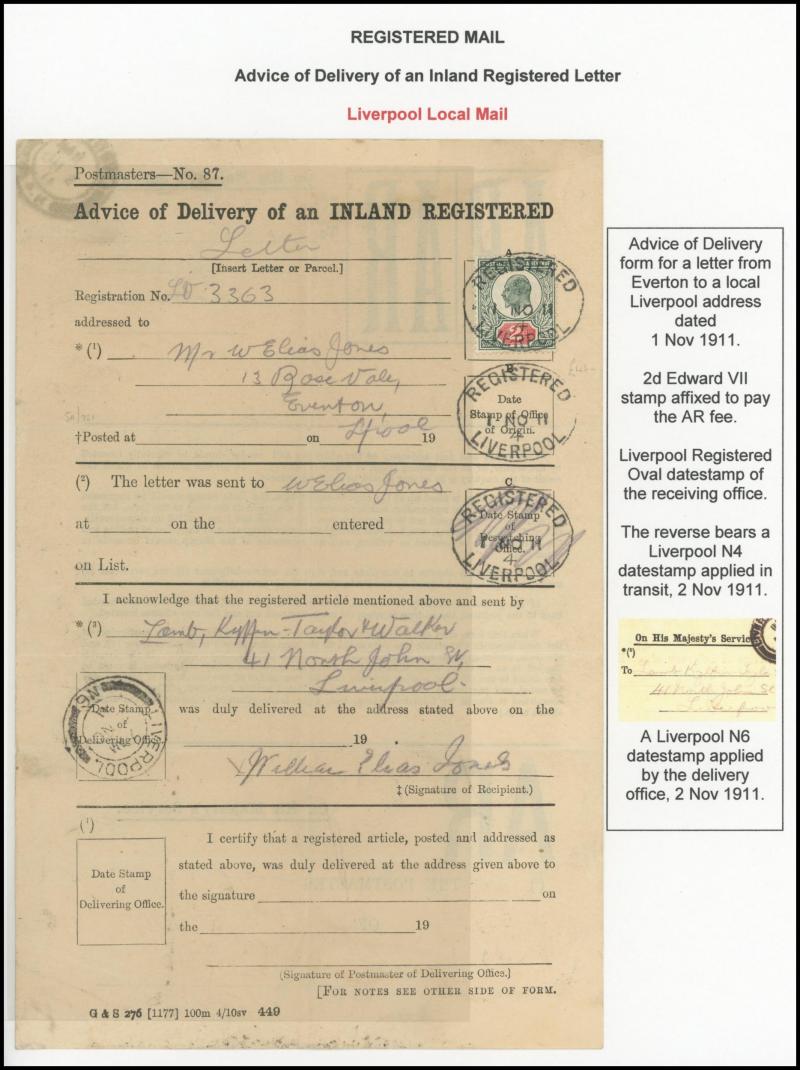 REGISTERED MAIL
Advice of Delivery of an Inland Registered Letter
Liverpool Local Mail
Postmasters—No. 87.
Advice of Delivery of an INLAND REGISTERED
Letter
[Insert Letter or Parcel.]
Registration No. 3363
addressed to
*(¹) Mr W Elias Jones
13 Rose Vale,
Everton,
†Posted at on L'pool 19
(²) The letter was sent to W Elias Jones
at on the entered
on List.
I acknowledge that the registered article mentioned above and sent by
*(³) Lamb, Kyffin-Taylor & Walker
41 North John St,
Liverpool.
was duly delivered at the address stated above on the
19 .
William Elias Jones
‡(Signature of Recipient.)
(¹)
I certify that a registered article, posted and addressed as
stated above, was duly delivered at the address given above to
the signature on
the 19
(Signature of Postmaster of Delivering Office.)
[FOR NOTES SEE OTHER SIDE OF FORM.
G & S 276 [1177] 100m 4/10sv 449
A
REGISTERED
1 NO 11
LIVERPOOL
2D
B
REGISTERED
Date
Stamp of Office
of Origin.
1 NO 11
4
LIVERPOOL
C
REGISTERED
Date Stamp
of
Despatching
Office.
1 NO 11
4
LIVERPOOL
Date Stamp
of
Delivering Office
LIVERPOOL
Date Stamp
of
Delivering Office.
Advice of Delivery
form for a letter from
Everton to a local
Liverpool address
dated
1 Nov 1911.
2d Edward VII
stamp affixed to pay
the AR fee.
Liverpool Registered
Oval datestamp of
the receiving office.
The reverse bears a
Liverpool N4
datestamp applied in
transit, 2 Nov 1911.
On His Majesty's Servic
*(¹)
To
41 North John St
A Liverpool N6
datestamp applied
by the delivery
office, 2 Nov 1911.